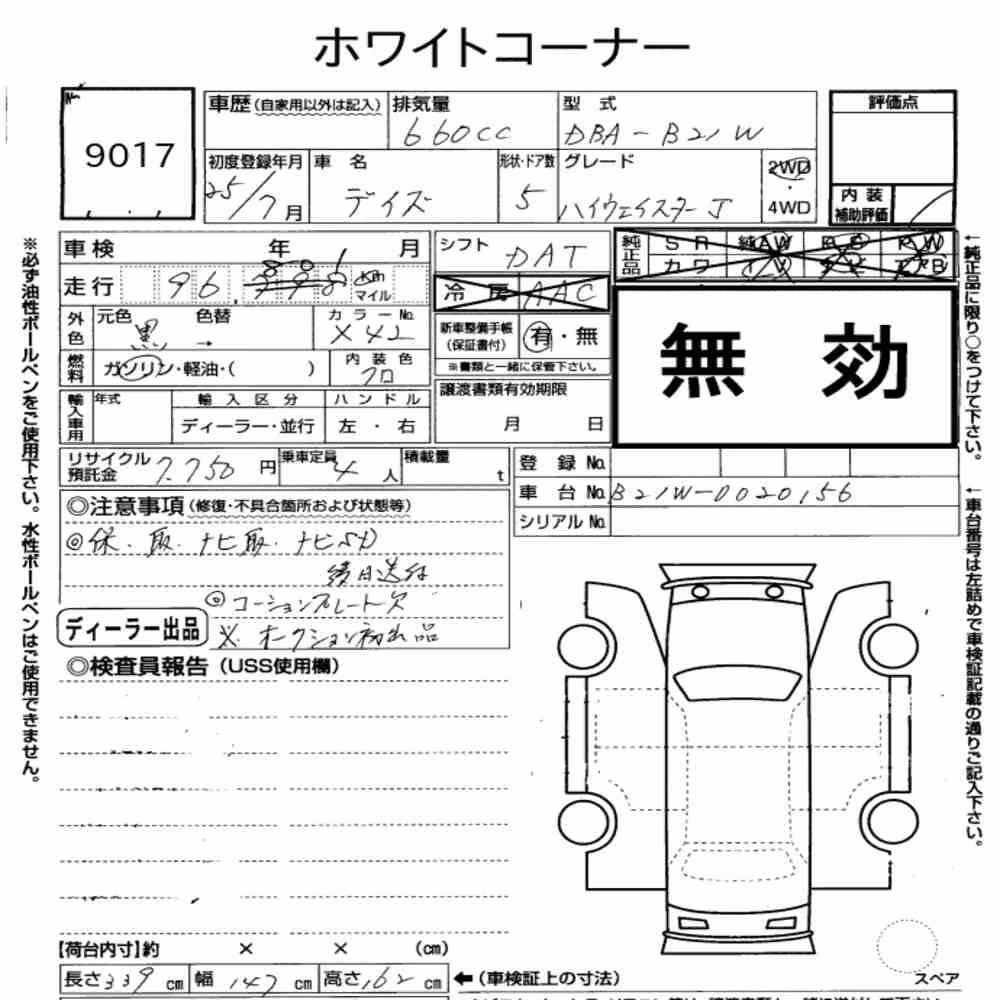 ホワイトコーナー
No.
9017
車歴(自家用以外は記入) 排気量 型式 評価点
660cc DBA-B21W
初度登録年月 車名 形状・ドア数 グレード 2WD・4WD 内装補助評価
25/7月 デイズ 5 ハイウェイスターJ
車検 年 月 シフト DAT 純正品 SR 純AW PS PW
カワ TV ナビ エアB
走行 96, Km マイル 冷房 AAC
外色 元色 黒 色替 → カラーNo. X42 新車整備手帳(保証書付) 有・無
※書類と一緒に保管下さい。
無効
燃料 ガソリン・軽油・( ) 内装色 クロ
譲渡書類有効期限
月 日
輸入車用 年式 輸入区分 ハンドル
ディーラー・並行 左・右
リサイクル預託金 7,750円 乗車定員 4人 積載量 t 登録No.
車台No. B21W-0020156
シリアルNo.
◎注意事項(修復・不具合箇所および状態等)
◎保・取・ナビ取・ナビSD
後日送付
◎コーションプレート欠
ディーラー出品
※オークション初出品
◎検査員報告(USS使用欄)
【荷台内寸】約 × × (cm)
長さ339cm 幅147cm 高さ162cm ←(車検証上の寸法)
スペア
※必ず油性ボールペンをご使用下さい。水性ボールペンはご使用できません。
←純正品に限り○をつけて下さい。
←車台番号は左詰めで車検証記載の通りご記入下さい。